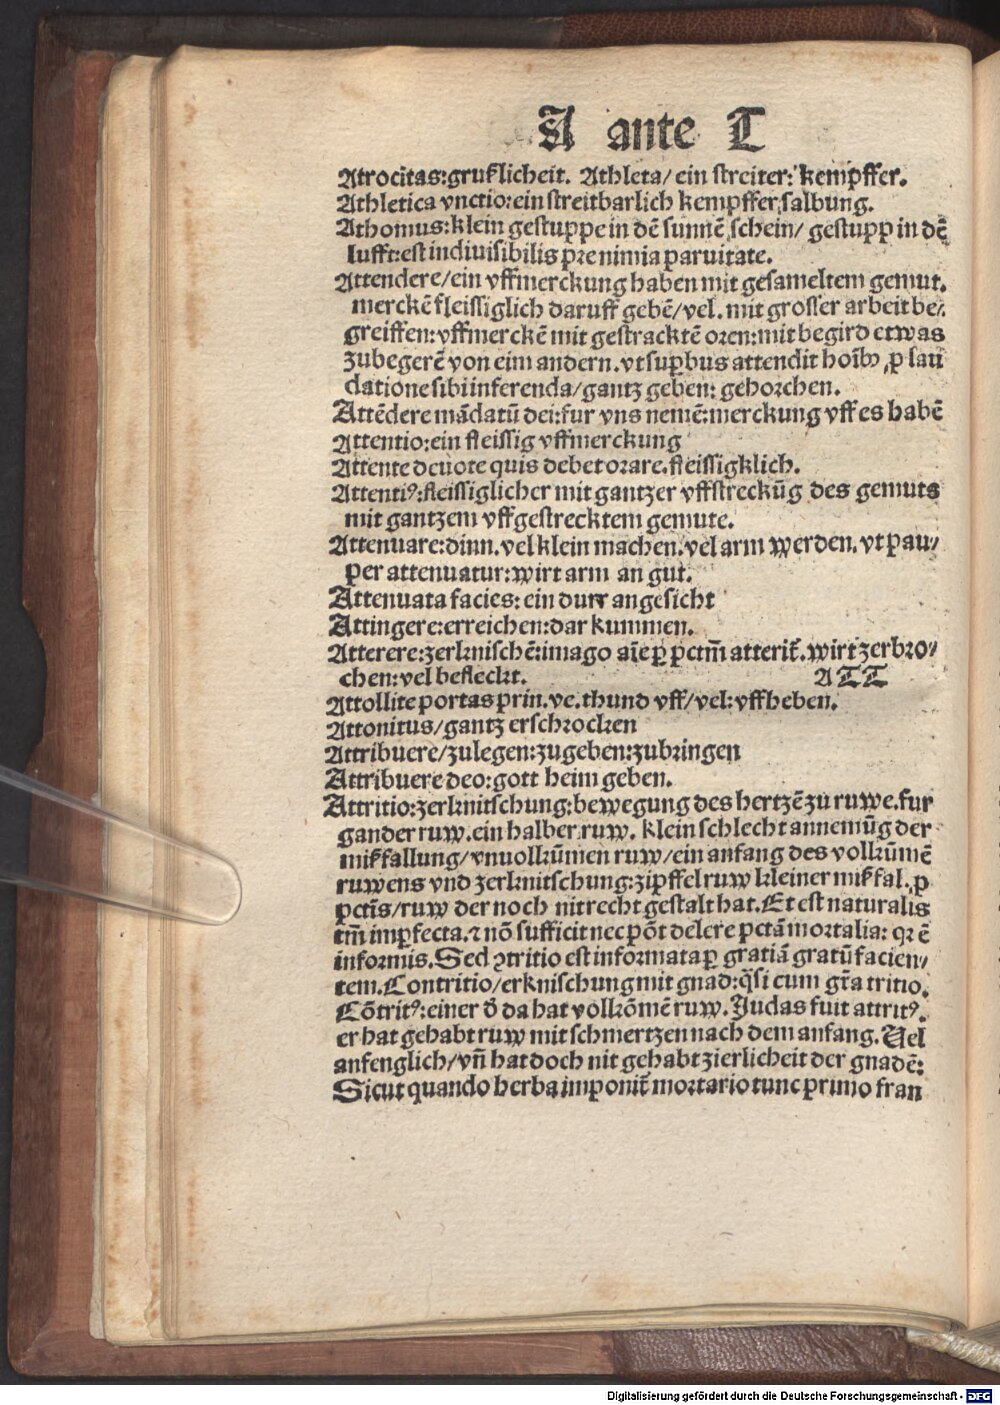 A ante T
Atrocitas:gruſlicheit. Athleta/ ein ſtreiter: kempffer.
Athletica vnctio:ein ſtreitbarlich kempffer ſalbung.
Athomus:klein geſtuppe in dē ſunnē ſchein/ geſtupp in dē
lufft:eſt indiuiſibilis pre nimia paruitate.
Attendere/ein vffmerckung haben mit geſameltem gemut.
merckē fleiſſiglich daruff gebē/vel. mit groſſer arbeit be/
greiffen:vffmerckē mit geſtracktē oren:mit begird etwas
zubegerē von eim andern. vt ſuꝑbus attendit hoīb⁹ ꝓ lau
datione ſibi inferenda/gantz geben: gehorchen.
Attēdere mādatū dei:fur vns nemē:merckung vff es habē
Attentio:ein fleiſſig vffmerckung
Attente deuote quis debet orare.fleiſſigklich.
Attenti⁹:fleiſſiglicher mit gantzer vffſtreckūg des gemuts
mit gantzem vffgeſtrecktem gemute.
Attenuare:dinn. vel klein machen. vel arm werden. vt pau/
per attenuatur:wirt arm an gut.
Attenuata facies: ein durr angeſicht
Attingere:erreichen:dar kummen.
Atterere:zerkniſchē:imago aīe ꝑ pctm̄ atterit̄. wirt zerbro/
chen:vel befleckt. ATT
Attollite portas prin. ve. thund vff/vel: vffheben.
Attonitus/gantz erſchrocken
Attribuere/zulegen:zugeben:zubringen
Attribuere deo:gott heim geben.
Attritio:zerknitſchung:bewegung des hertzē zu ruwe. fur
gander ruw. ein halber ruw. klein ſchlecht annemūg der
miſſfallung/vnuolkūmen ruw/ein anfang des volkūmē
ruwens vnd zerknitſchung:zipffelruw kleiner miſſfal. ꝓ
pctīs/ruw der noch nit recht geſtalt hat. Et eſt naturalis
tm̄ imꝑfecta. ⁊ nō ſufficit nec pōt delere pctā mortalia: qꝛ ē
informis. Sed ꝯtritio eſt informata ꝑ gratiā gratū facien/
tem. Contritio/erkniſchung mit gnad:q̄ſi cum gr̄a tritio.
Cōtrit⁹:einer d̄ da hat volkōmē ruw. Judas fuit attrit⁹.
er hat gehabt ruw mit ſchmertzen nach dem anfang. Vel
anfenglich/vn̄ hat doch nit gehabt zierlicheit der gnadē:
Sicut quando herba imponit̄ mortario tunc primo fran
Digitalisierung gefördert durch die Deutsche Forschungsgemeinschaft - DFG